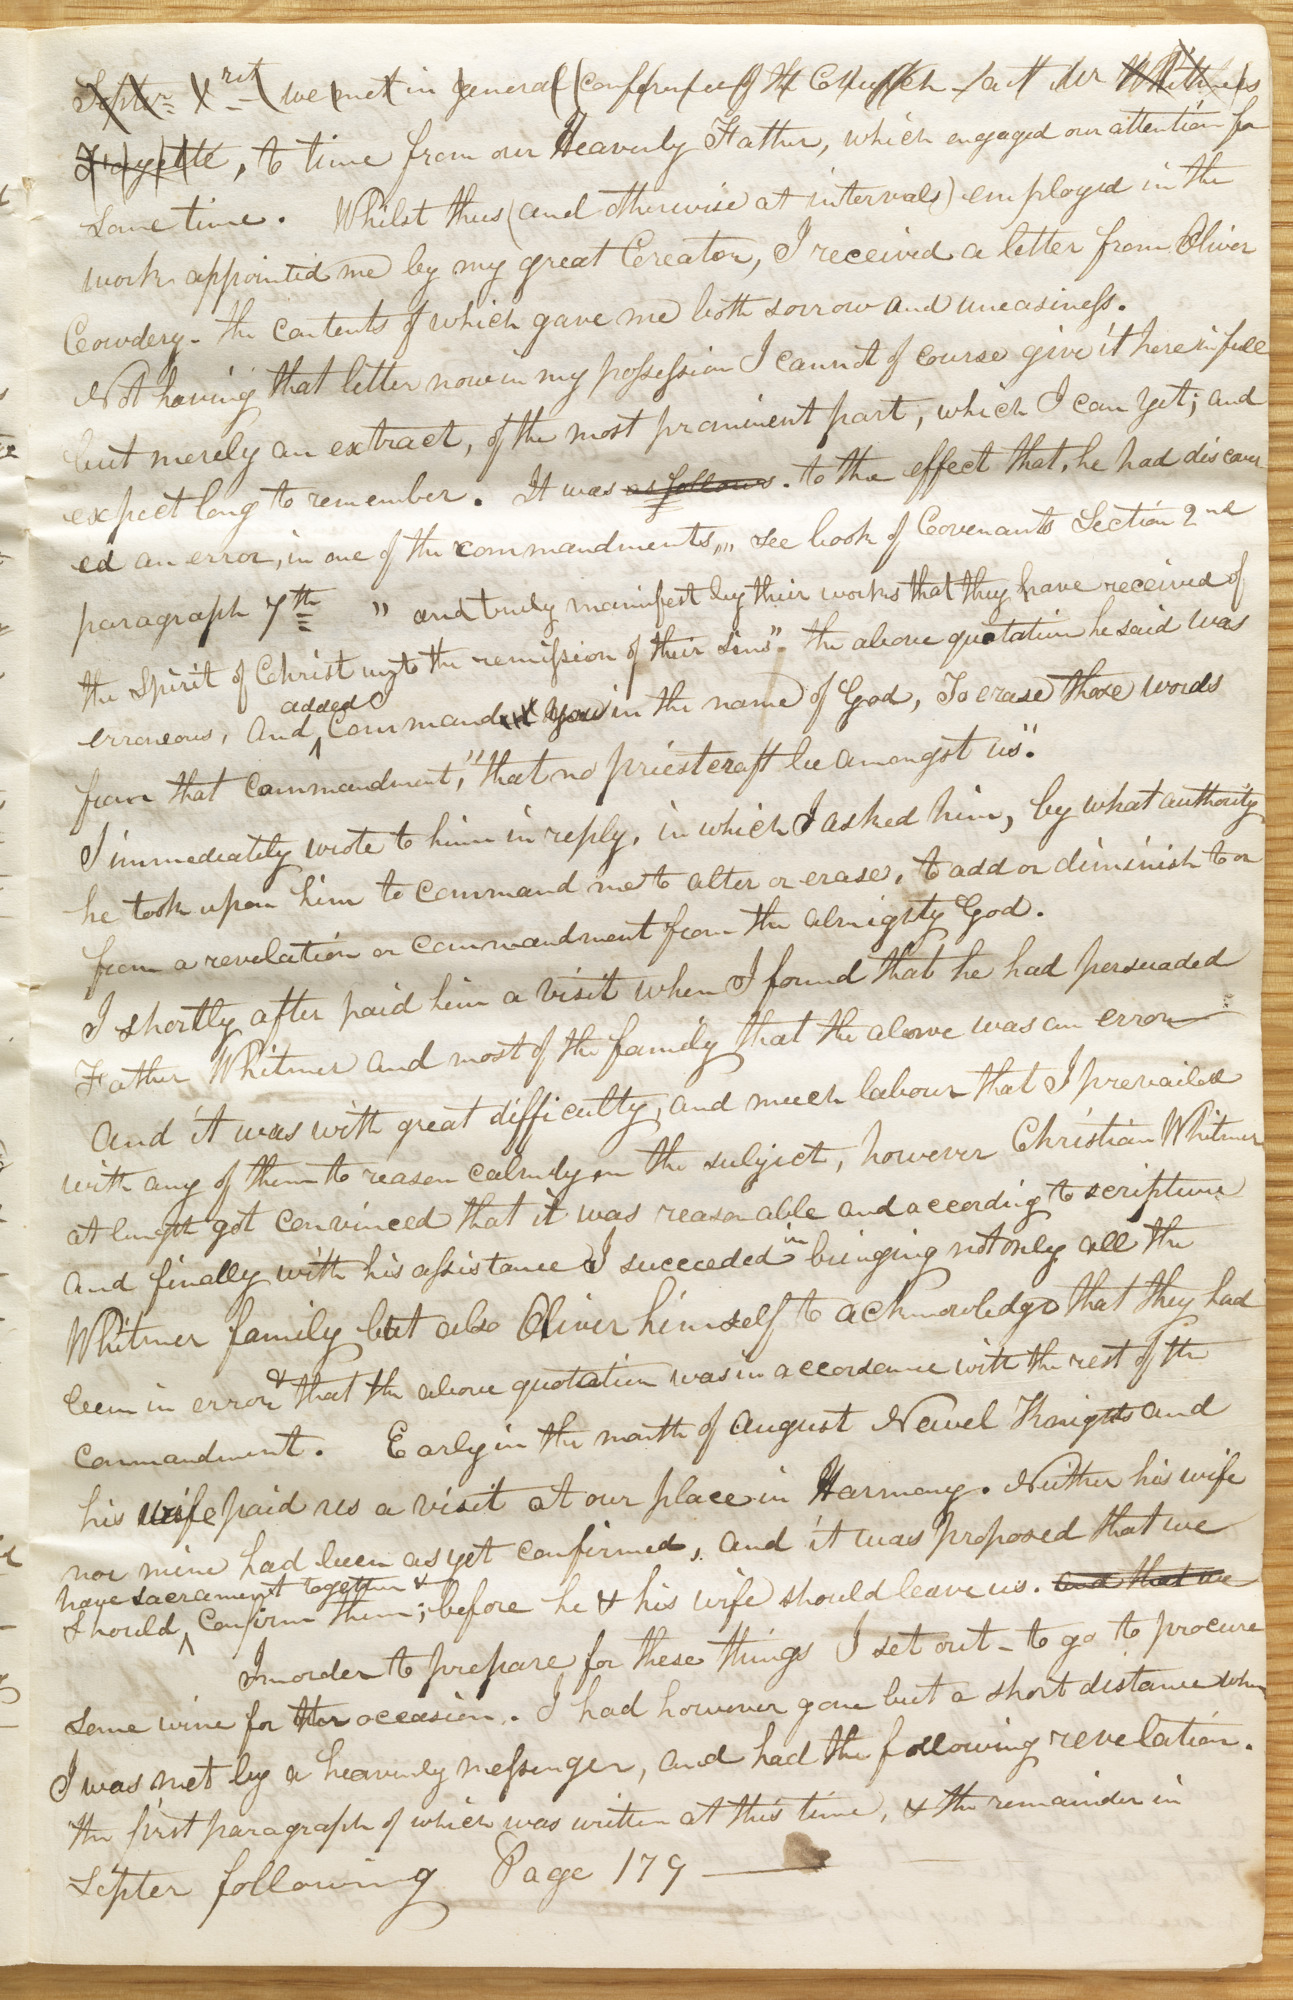 Septer 1rst we met in general conference of the Church at Mr Whitmers
Fayette, to time from our Heavenly Father, which engaged our attention for
some time. Whilst thus (and otherwise at intervals) employed in the
work appointed me by my great Cereator, I received a letter from Oliver
Cowdery - the contents of which gave me both sorrow and uneasiness.
Not having that letter now in my possession I cannot of course give it here in full
but merely an extract, of the most prominent part, which I can yet; and
expect long to remember. It was as follows. to the effect that, he had discover
ed an error, in one of the commandments,,,, see book of Covenants Section 2nd
paragraph 7th " and truly manifest by their works that they have received of
the Spirit of Christ unto the remission of their sins". the above quotation he said was
added
erroneous, and, Command you in the name of God, To erase those words
from that commandment, "that no priestcraft be amongst us".
I immediately wrote to him in reply, in which I asked him, by what authority
he took upon him to command me to alter or erase, to add or diminish to or
from a revelation or commandment from the almighty God.
I shortly after paid him a visit when I found that he had persuaded
Father Whitmer and most of the family that the above was an error
and it was with great difficulty, and much labour that I prevailed
with any of them to reason calmly on the subject, however Christian Whitmer
at length got convinced that it was reasonable and according to scripture
and finally with his assistance I succeeded in bringing not only all the
Whitmer family but also Oliver himself to acknowledge that they had
been in error & that the above quotation was in accordance with the rest of the
commandment. Early in the month of august Newel Knight and
his wife paid us a visit at our place in Harmony. Neither his wife
nor mine had been as yet confirmed, and it was proposed that we
have sacrament together &
should, confirm them; before he & his wife should leave us. and that we
In order to prepare for these things I set out - to go to procure
some wine for the occasion. I had however gone but a short distance when
I was met by a heavenly messenger, and had the following revelation.
the first paragraph of which was written at this time, & the remainder in
Septer following Page 179